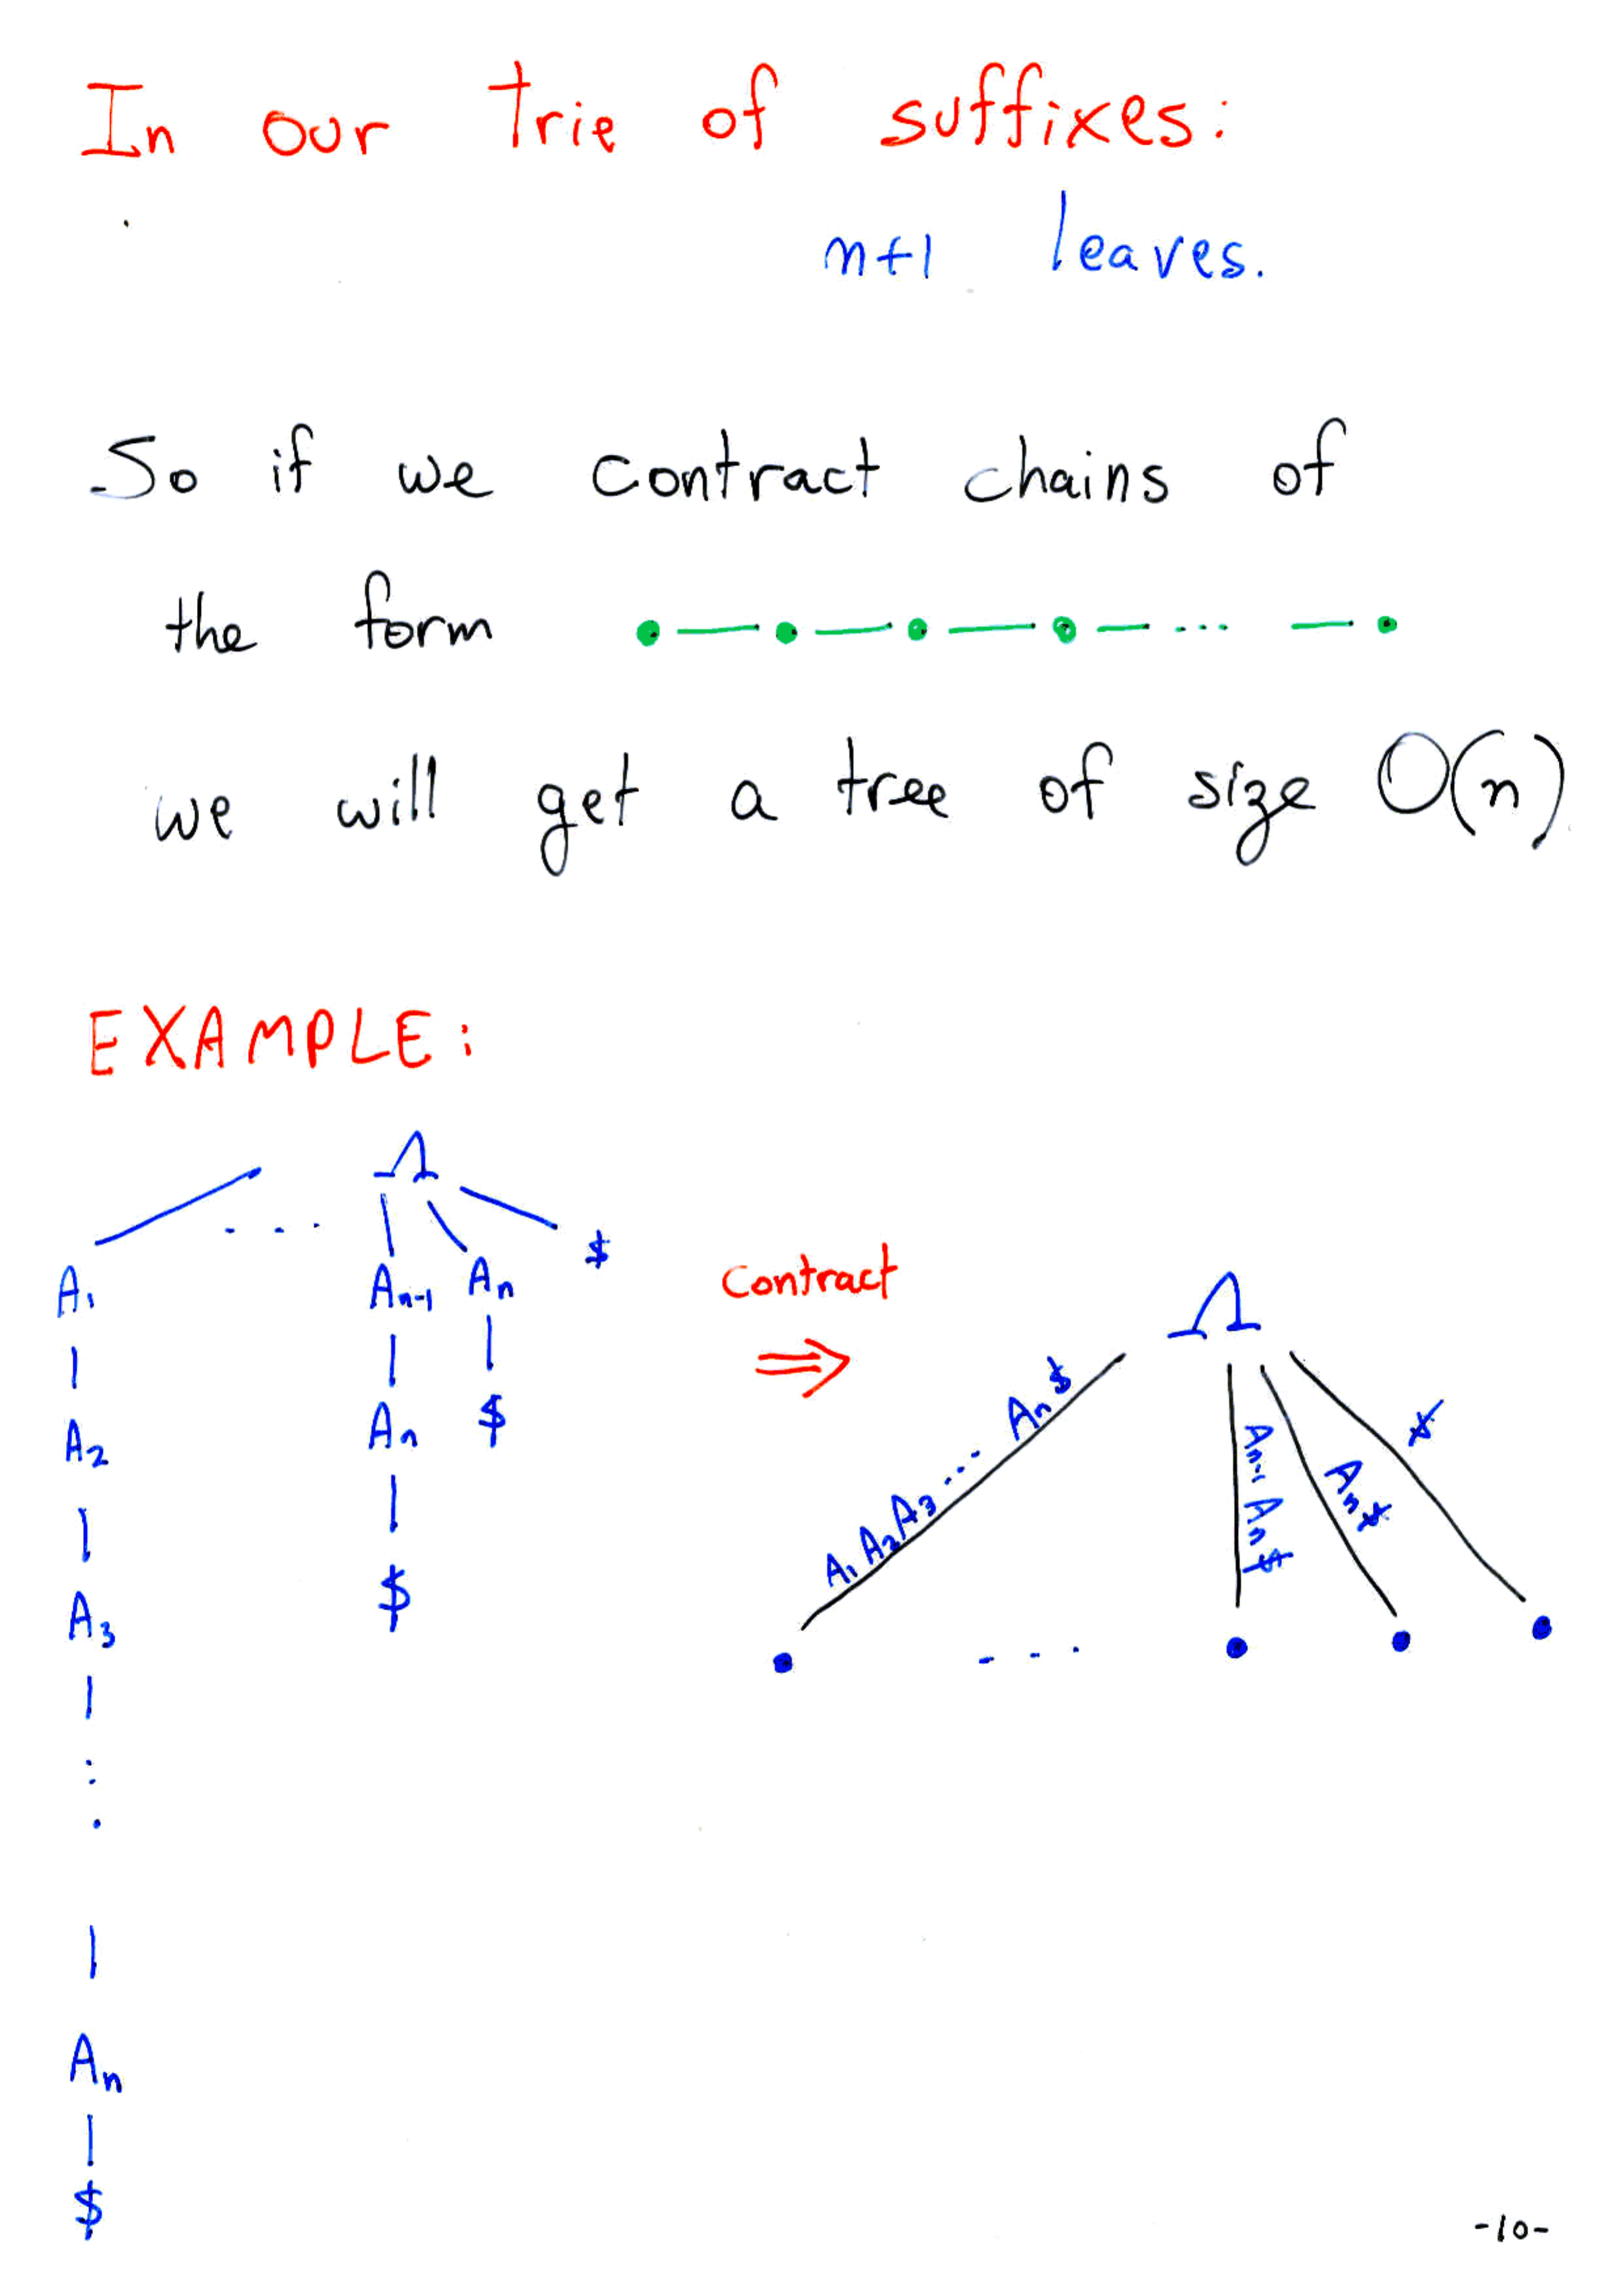 In our Trie of suffixes:
n+1 leaves.
So if we contract chains of
the form
we will get a tree of size O(n)
EXAMPLE:
Λ
A₁ ... Aₙ₋₁ Aₙ $
A₂ Aₙ $
A₃ $
⋮
Aₙ
$
contract
⇒
Λ
A₁ A₂ A₃ ... Aₙ $
Aₙ₋₁ Aₙ $
Aₙ $
$
...
-10-